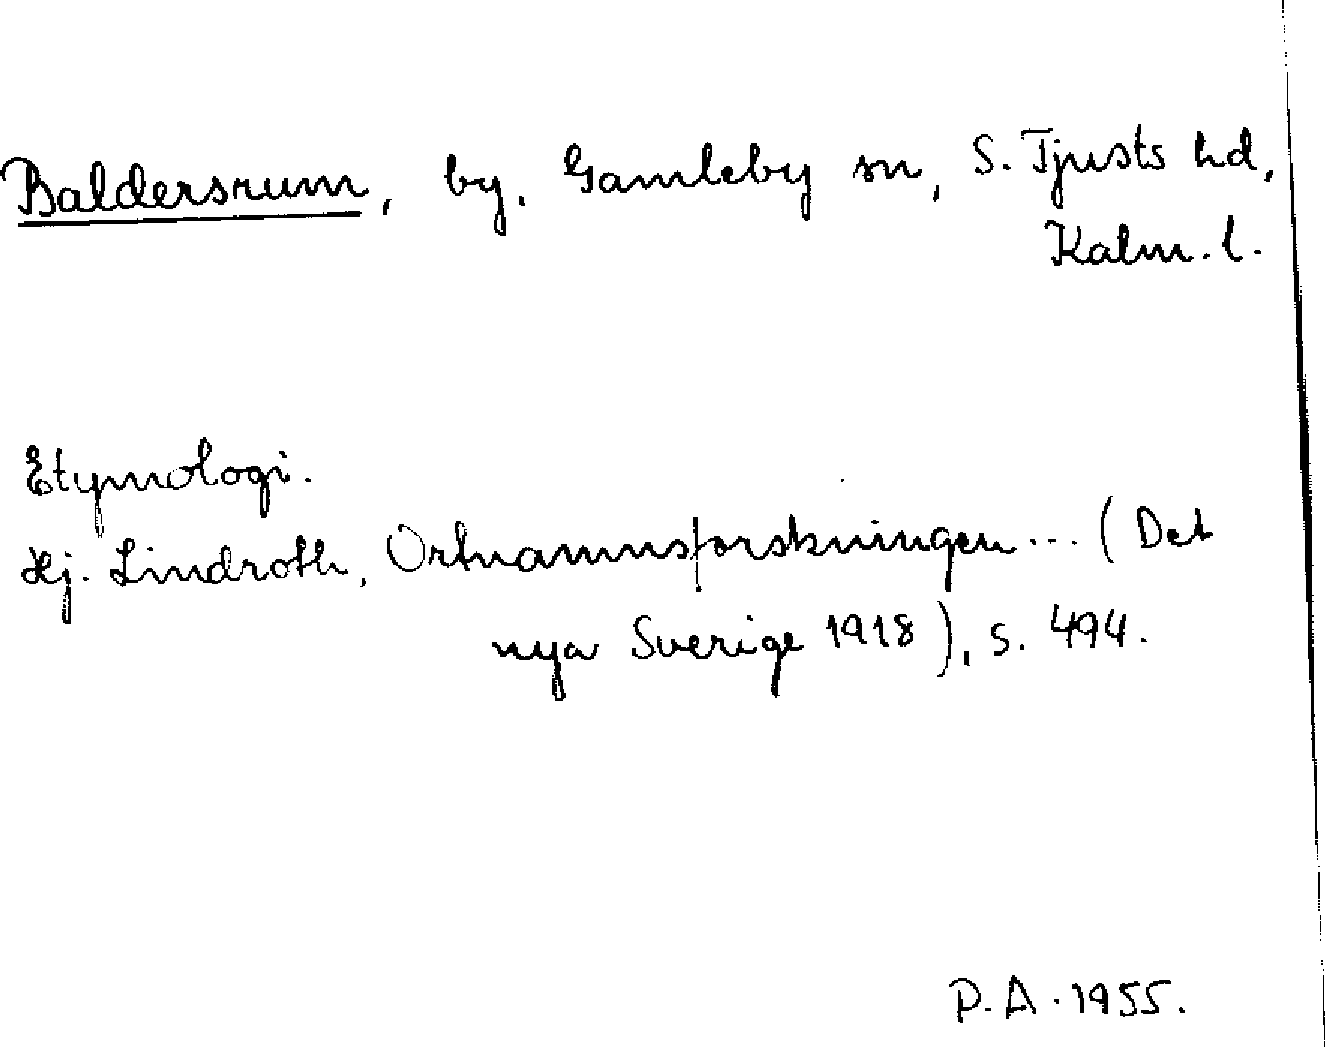 Baldersrum, by. Gamleby sn, S. Tjusts hd,
Kalm. l.
Etymologi.
Hj. Lindroth, Ortnamnsforskningen ... (Det
nya Sverige 1918), s. 494.
P.A. 1955.